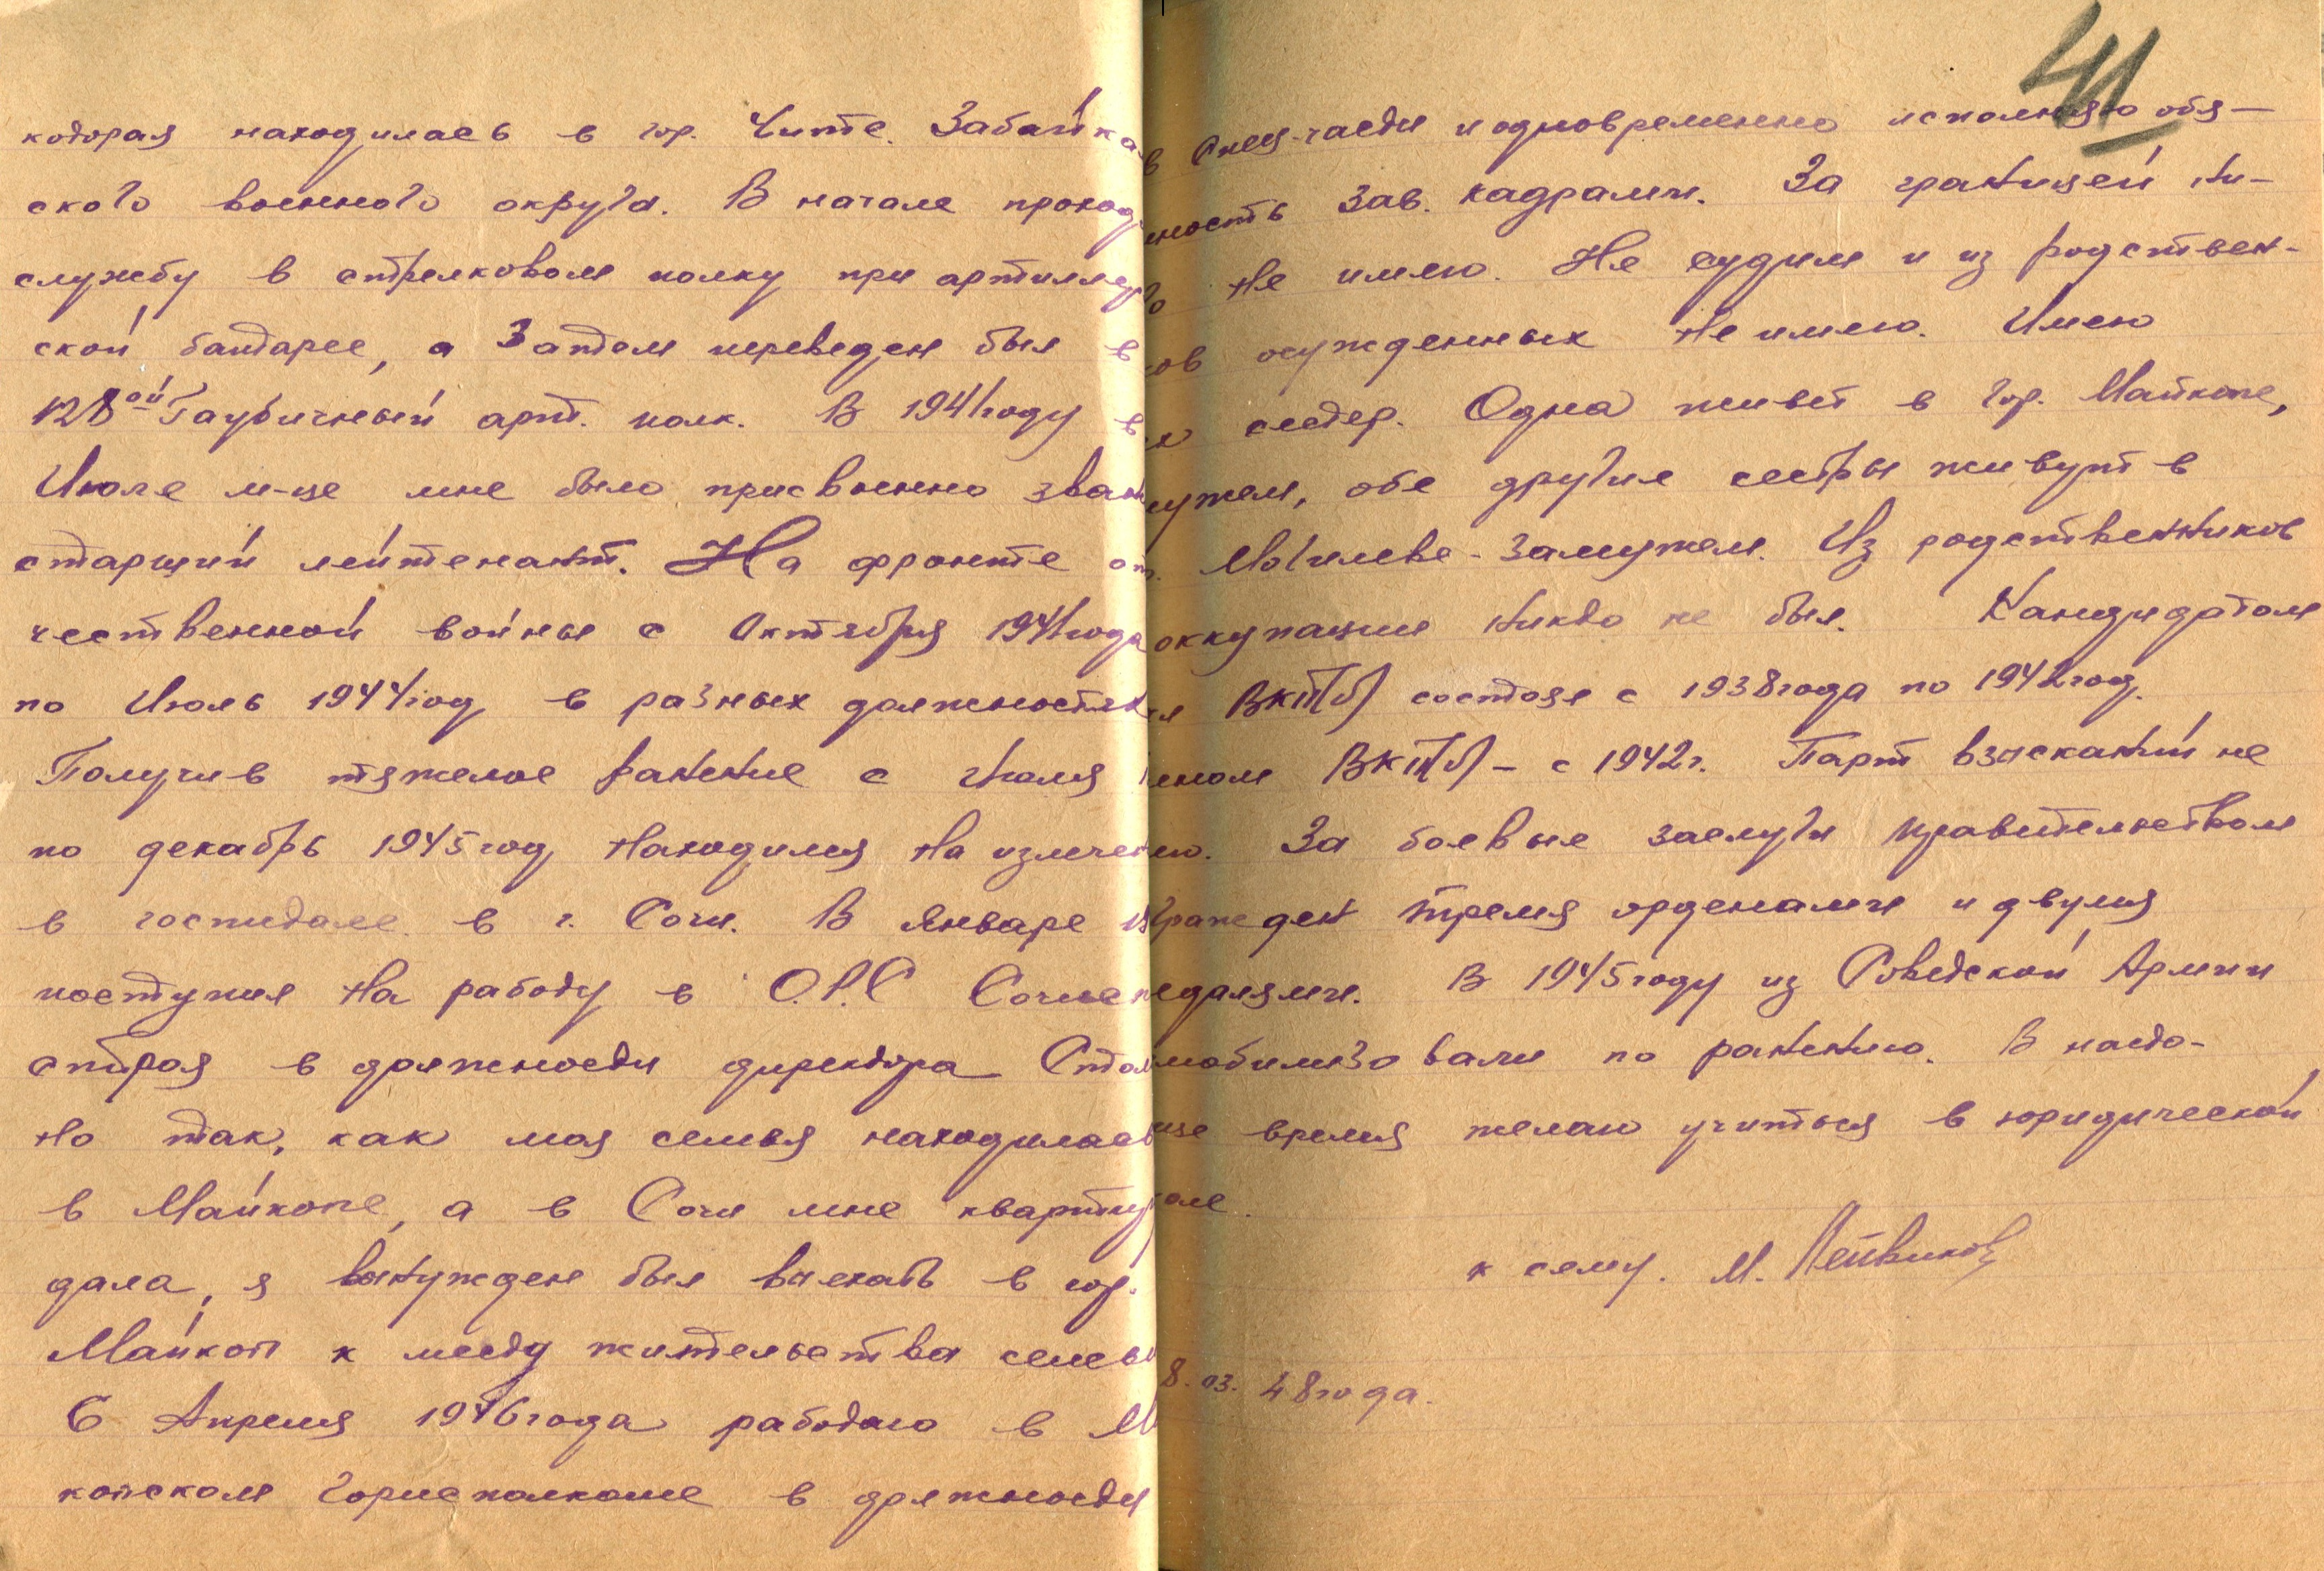 которая находилась в гор. Чите. Забайка
ского военного округа. В начале проход
службу в стрелковом полку при артиллер
ской батарее, а затем переведен был в
128ой Гаубичный арт. полк. В 1941году в
Июле м-це мне было присвоенно зван
старший лейтенант. На фронте от
чественной войны с Октября 1941года
по Июль 1944год в разных должностях
Получив тяжелое ранение с Июля
по декабрь 1945год находился на излечен
в госпитале в г. Сочи. В Январе
поступил на работу в О.Р.С Сочи
строя в должности директора Стол
но так, как моя семья находилась
в Майкопе, а в Сочи мне квартир
дала, я вынужден был выехать в гор.
Майкоп к месту жительства семьи
С Апреля 1946года работаю в М
копском Горисполкоме в должности
41
в Спец-части и одновременно исполняю обя-
ность Зав. кадрами. За границей ни-
го не имею. Не судим и из родствен-
ов осужденных не имею. Имею
х сестер. Одна живет в гор. Майкопе,
мужем, обе другие сестры живут в
Могилеве - замужем. Из родственников
оккупации никто не был. Кандидатом
ВКП(б) состоял с 1938года по 1942год.
леном ВКП(б) - с 1942г. Парт взысканий не
ею. За боевые заслуги правительством
гражден тремя орденами и двумя
едалями. В 1945году из Советской Армии
мобилизовали по ранению. В насто-
ще время желаю учиться в юридической
оле.
к сему. М. Лейвиков
8. 03. 48года.